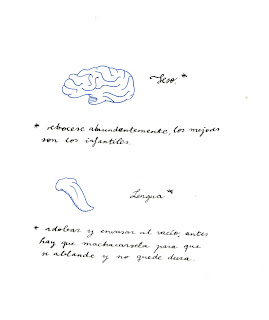 Seso.*
* rebócese abundantemente, los mejores
son los infantiles.
Lengua *
* adobar y envasar al vacío, antes
hay que machacarsela para que
se ablande y no quede dura.